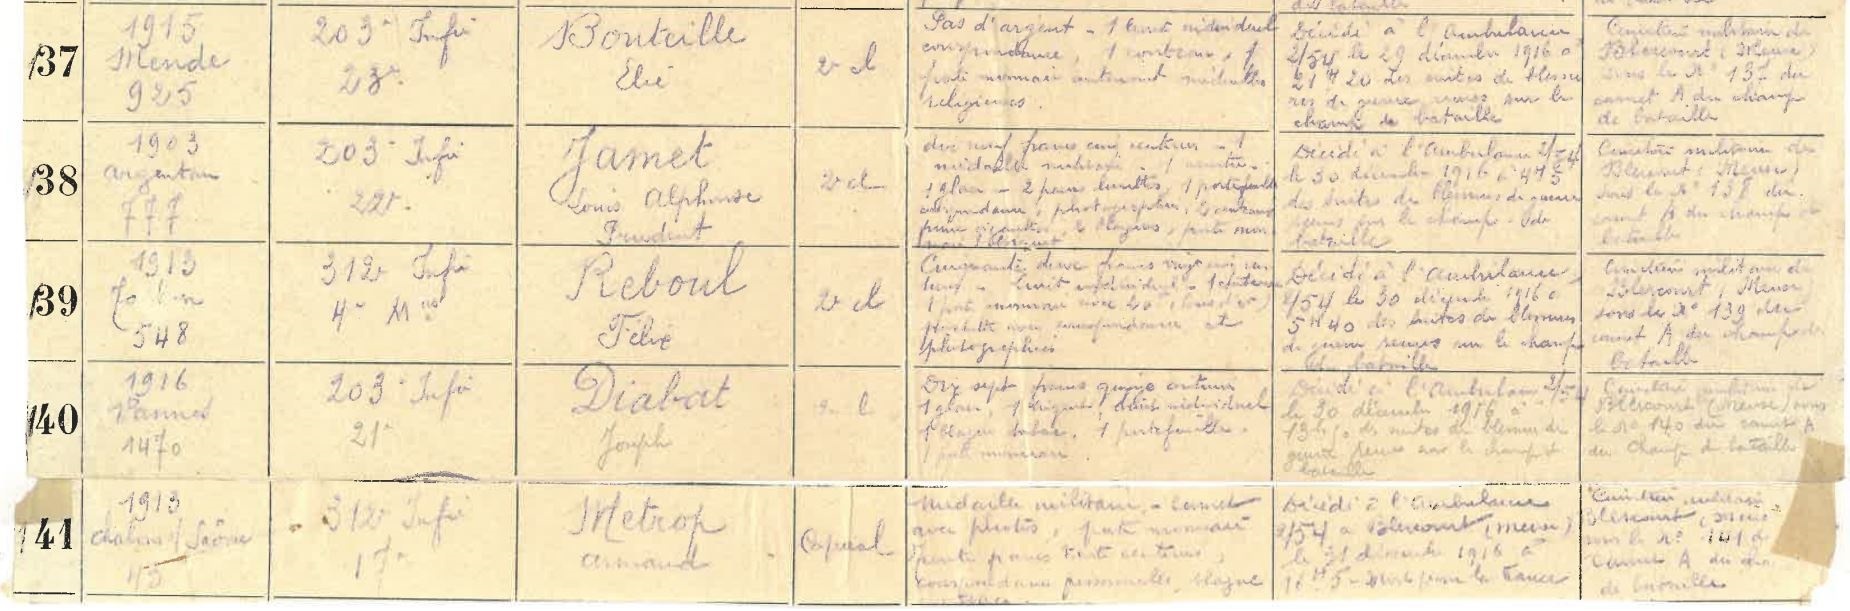 137
1915
Mende
925
203e Infie
23e
Bouteille
Elié
2e cl
Pas d'argent - 1 livret individuel
correspondance, 1 couteau, 1
porte monnaie contenant médailles
religieuses.
Décédé à l'Ambulance
2/54 le 29 décembre 1916 à
21h20 des suites de blessu
res de guerre reçues sur le
champ de bataille
Cimetière militaire de
Blercourt (Meuse)
sous le No 137 du
carnet A du champ
de bataille
138
1903
Argentan
777
203e Infie
22e
Jamet
Louis Alphonse
Prudent
2e cl
dix neuf francs cinq centimes - 1
médaille militaire - 1 montre -
1 glace - 2 paires lunettes, 1 portefeuille
correspondance, photographies, 2 couteaux
blagues, porte mon
naie 1 briquet
Décédé à l'Ambulance 2/54
le 30 décembre 1916 à 4h
des suites de blessures de guerre
reçues sur le champ de
bataille
Cimetière militaire de
Blercourt (Meuse)
sous le No 138 du
carnet A du champ de
bataille
139
1913
548
312e Infie
4e Mses
Reboul
Félix
2e cl
Cinquante deux francs
livret individuel - 1 couteau
1 porte monnaie avec
correspondance et
photographies
Décédé à l'Ambulance
2/54 le 30 décembre 1916 à
5h40 des suites de blessures
de guerre reçues sur le champ
de bataille
Cimetière militaire de
Blercourt (Meuse)
sous le No 139 du
carnet A du champ de
bataille
140
1916
Vannes
1470
203e Infie
21e
Diabat
Joseph
2e cl
Dix sept francs quinze centimes
1 glace, 1 livret individuel
1 blague tabac, 1 portefeuille
1 porte monnaie.
Décédé à l'Ambulance 2/54
le 30 décembre 1916 à
13h des suites de blessures de
guerre reçues sur le champ de
bataille
Cimetière militaire de
Blercourt (Meuse) sous
le No 140 du carnet A
du Champ de bataille
141
1913
Chalon s/ Saône
312e Infie
17e
Metrop
Armand
Caporal
Médaille militaire - carnet
avec photos, porte monnaie
trente francs trente centimes,
correspondance personnelle, blague
Décédé à l'Ambulance
2/54 à Blercourt (Meuse)
le 31 décembre 1916 à
16h5 - Mort pour la France
Cimetière militaire
Blercourt (Meuse
sous le No 141 du
Carnet A du cha
de bataille